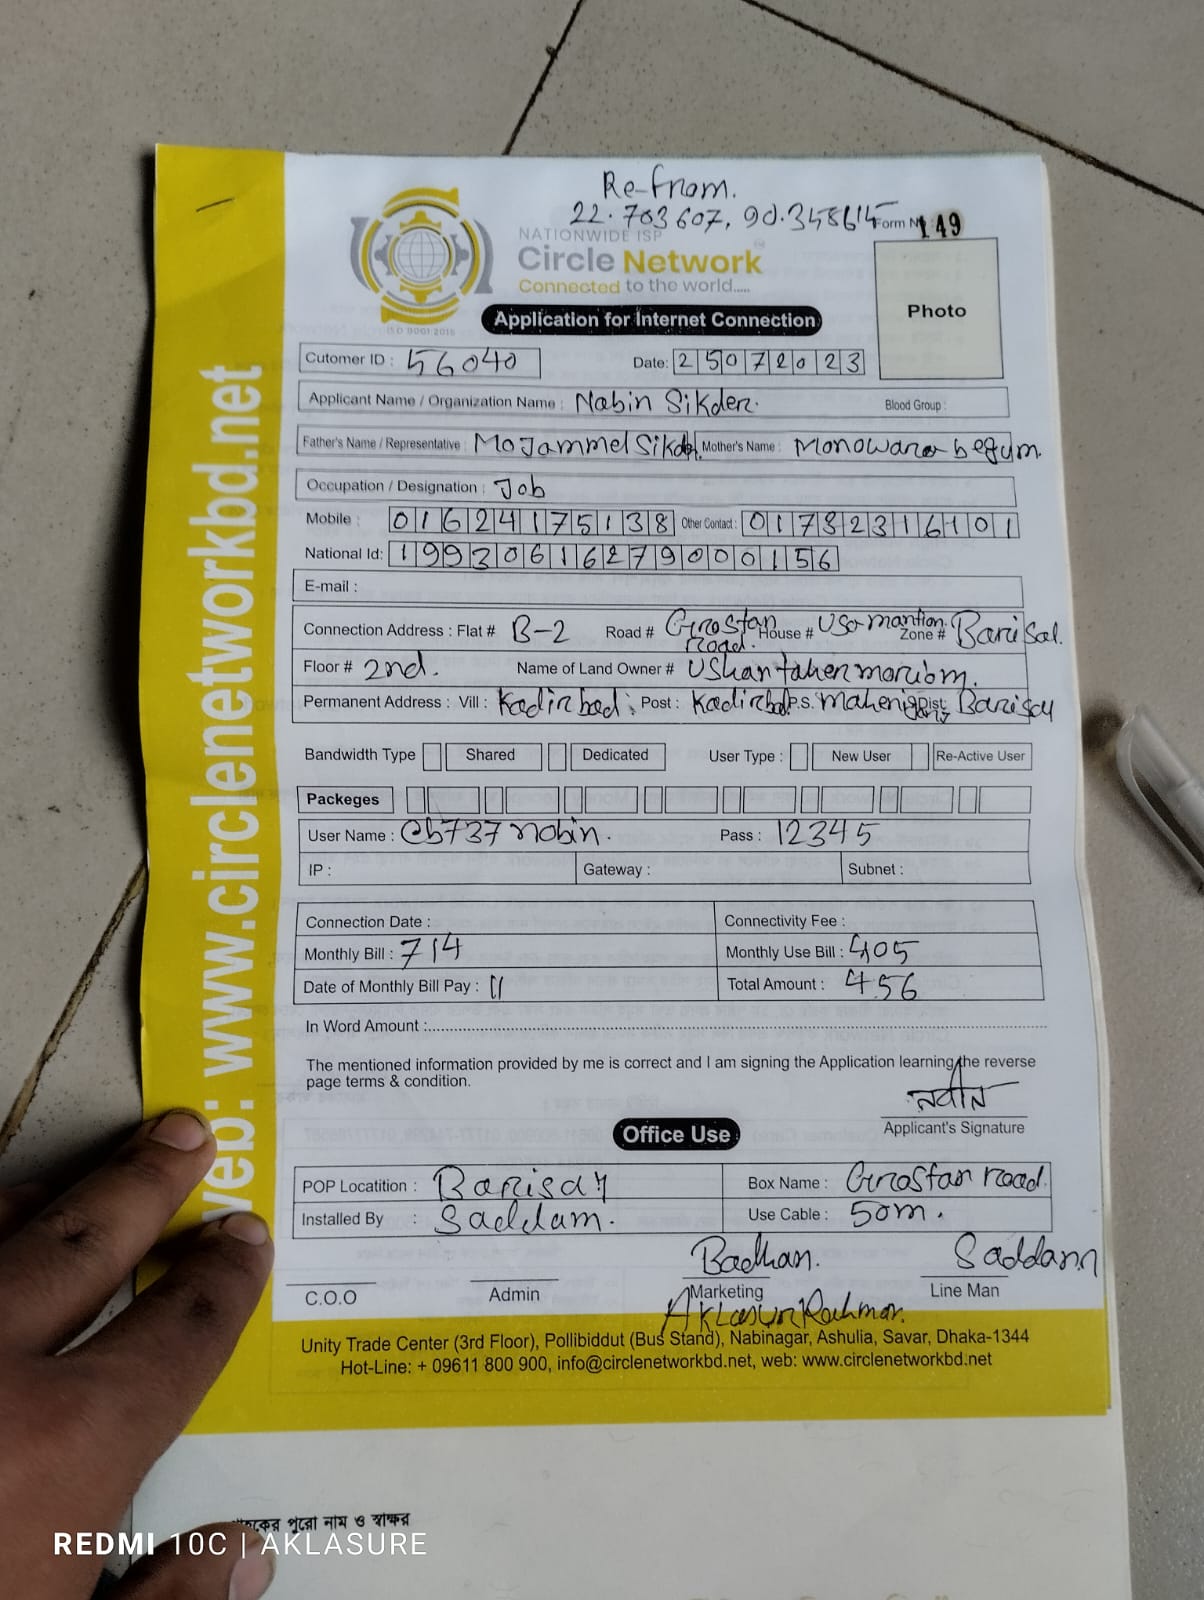 Re-From.
22.703607, 90.348615 Form N 149
NATIONWIDE ISP
Circle Network
Connected to the world.....
ISO 9001:2015
Application for Internet Connection
Photo
Cutomer ID : 56040 Date: 25072023
Applicant Name / Organization Name : Nabin Sikder. Blood Group :
Father's Name / Representative : Mojammel Sikder. Mother's Name : Monowara begum.
Occupation / Designation : Job
Mobile : 01624175138 Other Contact : 01782316101
National Id: 19930616279000156
E-mail :
Connection Address : Flat # B-2 Road # Grostan Road. House # Uso mantion. Zone # Barisal.
Floor # 2nd. Name of Land Owner # Ushan taher moriom.
Permanent Address : Vill : Kadirbad; Post : Kadirbad P.S. Dist Barisal
Bandwidth Type Shared Dedicated User Type : New User Re-Active User
Packeges
User Name : cb737 nobin. Pass : 12345
IP : Gateway : Subnet :
Connection Date : Connectivity Fee :
Monthly Bill : 714 Monthly Use Bill : 405
Date of Monthly Bill Pay : 11 Total Amount : 456
In Word Amount :
The mentioned information provided by me is correct and I am signing the Application learning the reverse
page terms & condition.
নবীন
Applicant's Signature
Office Use
POP Locatition : Barisal Box Name : Grostan road.
Installed By : Saddam. Use Cable : 50m.
Badhan. Saddam
C.O.O Admin Marketing Line Man
Aklasur Rahman.
Unity Trade Center (3rd Floor), Pollibiddut (Bus Stand), Nabinagar, Ashulia, Savar, Dhaka-1344
Hot-Line: + 09611 800 900, info@circlenetworkbd.net, web: www.circlenetworkbd.net
web: www.circlenetworkbd.net
পুরো নাম ও স্বাক্ষর
REDMI 10C | AKLASURE